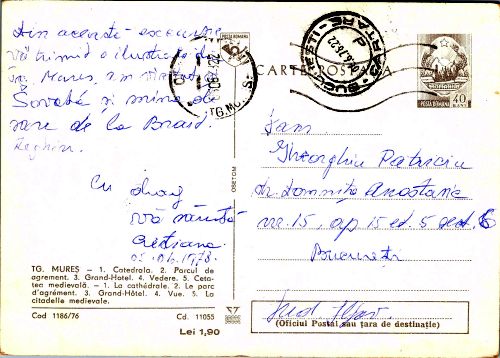 Din această excursie
vă trimid o ilustrată din
Tg. Mureș, am vizitat
Sovata și mina de
sare de la Braid.
Reghin.
Cu drag
vă sărută
05.06.1978.
TG. MUREȘ — 1. Catedrala. 2. Parcul de
agrement. 3. Grand-Hotel. 4. Vedere. 5. Ceta-
tea medievală. — 1. La cathédrale. 2. Le parc
d'agrément. 3. Grand-Hôtel. 4. Vue. 5. La
citadelle medievale.
Cod 1186/76 Cd. 11055
Lei 1,90
OBETDM
TG. MUREȘ
CARTE POȘTALĂ
BUCUREȘTI
CARTARE
POSTA ROMANA
40
BANI
Fam
Gheorghiu Patriciu
str. Domnița Anastasia
nr. 15, ap 15 et. 5 sect. 6
București
Jud. Ilfov
(Oficiul Poștal sau țara de destinație)